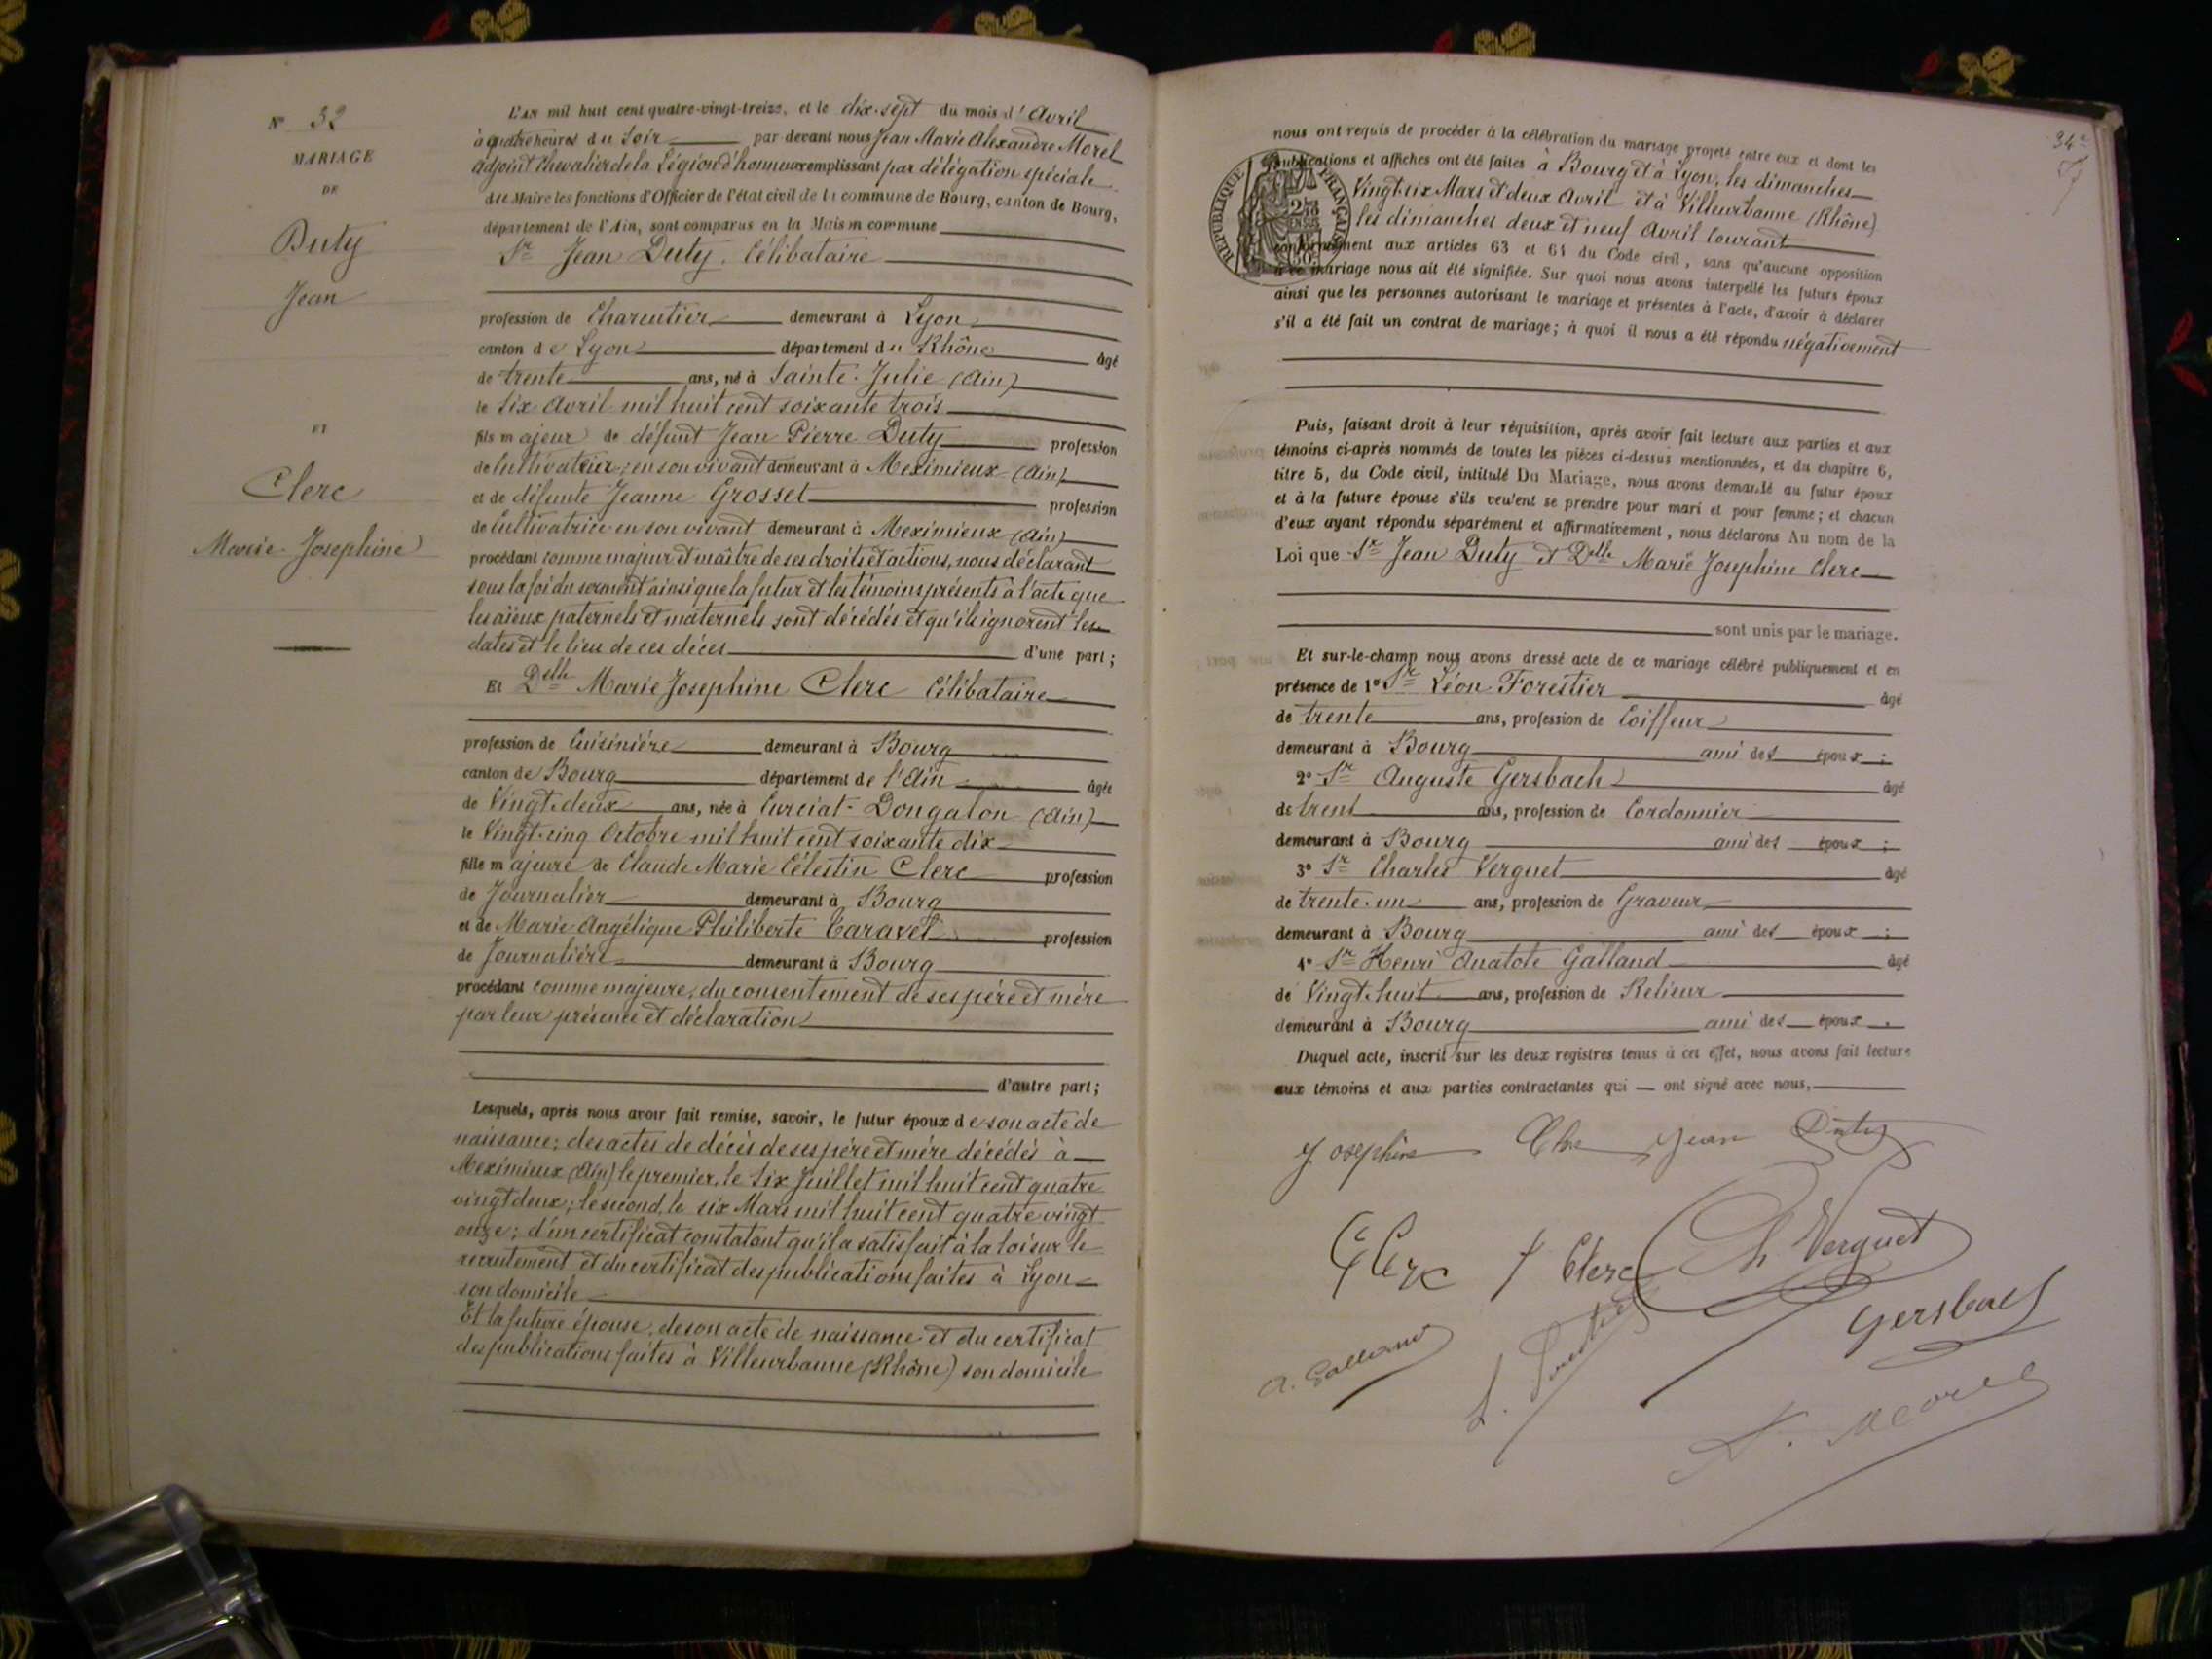 N° 32
MARIAGE
DE
Duty
Jean
ET
Clerc
Marie Josephine
L'AN mil huit cent quatre-vingt-treize, et le dix-sept du mois d'Avril
à quatre heures du Soir par devant nous Jean Marie Alexandre Morel
adjoint Chevalier de la Légion d'honneur remplissant par délégation spéciale
du Maire les fonctions d'Officier de l'état civil de la commune de Bourg, canton de Bourg,
département de l'Ain, sont comparus en la Maison commune
Sr Jean Duty, Célibataire
profession de Charcutier demeurant à Lyon
canton de Lyon département du Rhône âgé
de trente ans, né à Sainte-Julie (Ain)
le Six Avril mil huit cent soixante trois
fils majeur de défunt Jean Pierre Duty profession
de Cultivateur; en son vivant demeurant à Meximieux (Ain)
et de défunte Jeanne Grosset profession
de Cultivatrice en son vivant demeurant à Meximieux (Ain)
procédant comme majeur et maître de ses droits et actions, nous déclarant
sous la foi du serment ainsi que la futur et les témoins présents à l'acte que
les aïeux paternels et maternels sont décédés et qu'ils ignorent les
dates et le lieu de ces décès d'une part;
Et Delle Marie Josephine Clerc Célibataire
profession de Cuisinière demeurant à Bourg
canton de Bourg département de l'Ain âgée
de Vingt-deux ans, née à Curciat-Dongalon (Ain)
le Vingt-cinq Octobre mil huit cent soixante dix
fille majeure de Claude Marie Célestin Clerc profession
de Journalier demeurant à Bourg
et de Marie Angélique Philiberte Caravel profession
de Journalière demeurant à Bourg
procédant comme majeure, du consentement de ses père et mère
par leur présence et déclaration
d'autre part;
Lesquels, après nous avoir fait remise, savoir, le futur époux de son acte de
naissance; des actes de décès de ses père et mère décédés à
Meximieux (Ain) le premier, le Six Juillet mil huit cent quatre
vingt deux; le second, le six Mars mil huit cent quatre vingt
onze; d'un certificat constatant qu'il a satisfait à la loi sur le
recrutement et du certificat des publications faites à Lyon
son domicile
Et la future épouse, de son acte de naissance et du certificat
des publications faites à Villeurbanne (Rhône) son domicile
34e
nous ont requis de procéder à la célébration du mariage projeté entre eux et dont les
publications et affiches ont été faites à Bourg et à Lyon, les dimanches
Vingt-six Mars et deux Avril et à Villeurbanne (Rhône)
les dimanches deux et neuf Avril Courant
conformément aux articles 63 et 64 du Code civil, sans qu'aucune opposition
à ce mariage nous ait été signifiée. Sur quoi nous avons interpellé les futurs époux
ainsi que les personnes autorisant le mariage et présentes à l'acte, d'avoir à déclarer
s'il a été fait un contrat de mariage; à quoi il nous a été répondu négativement
RÉPUBLIQUE FRANÇAISE
Puis, faisant droit à leur réquisition, après avoir fait lecture aux parties et aux
témoins ci-après nommés de toutes les pièces ci-dessus mentionnées, et du chapitre 6,
titre 5, du Code civil, intitulé Du Mariage, nous avons demandé au futur époux
et à la future épouse s'ils veulent se prendre pour mari et pour femme; et chacun
d'eux ayant répondu séparément et affirmativement, nous déclarons Au nom de la
Loi que Sr Jean Duty et Delle Marie Josephine Clerc
sont unis par le mariage.
Et sur-le-champ nous avons dressé acte de ce mariage célébré publiquement et en
présence de 1° Sr Léon Forestier âgé
de trente ans, profession de Coiffeur
demeurant à Bourg ami des époux;
2° Sr Auguste Gersbach âgé
de trent ans, profession de Cordonnier
demeurant à Bourg ami des époux;
3° Sr Charles Verguet âgé
de trente-un ans, profession de Graveur
demeurant à Bourg ami des époux;
4° Sr Henri Anatole Galland âgé
de Vingt-huit ans, profession de Relieur
demeurant à Bourg ami des époux.
Duquel acte, inscrit sur les deux registres tenus à cet effet, nous avons fait lecture
aux témoins et aux parties contractantes qui — ont signé avec nous,
Josephine Jean Duty
Clerc Clerc Ch Verguet
A. Galland L. Forestier Gersbach
A. Morel